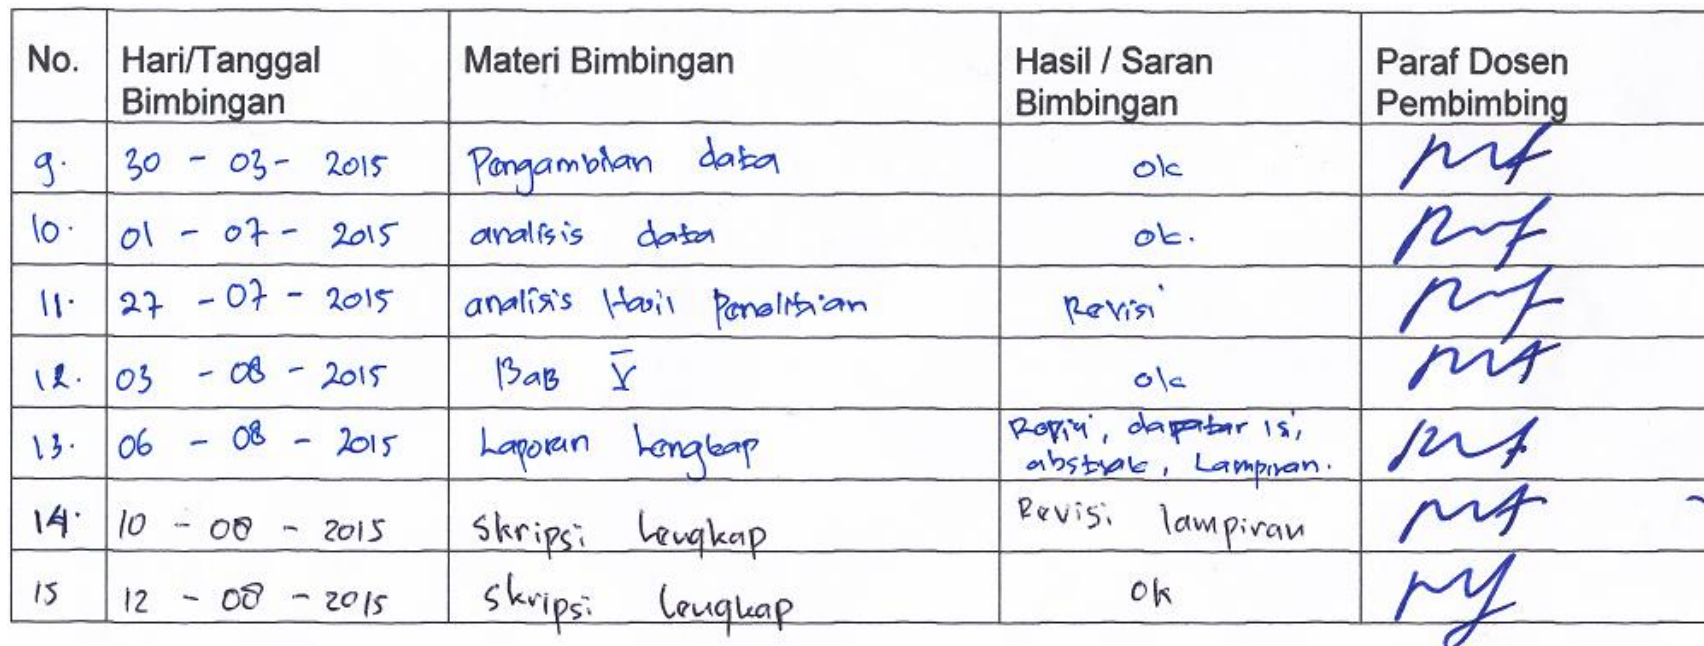 No. Hari/Tanggal Bimbingan Materi Bimbingan Hasil / Saran Bimbingan Paraf Dosen Pembimbing
9. 30 - 03 - 2015 Pengambilan data ok
10. 01 - 07 - 2015 analisis data ok.
11. 27 - 07 - 2015 analisis Hasil Penelitian Revisi
12. 03 - 08 - 2015 Bab V ok
13. 06 - 08 - 2015 Laporan Lengkap Revisi, dapatar isi,
abstrak, Lampiran.
14. 10 - 08 - 2015 Skripsi Lengkap Revisi lampiran
15 12 - 08 - 2015 Skripsi Lengkap Ok